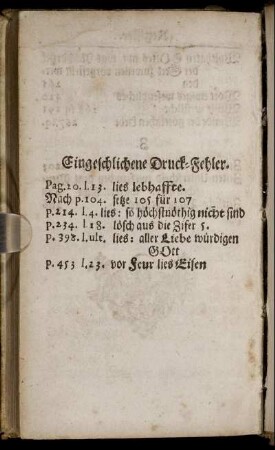 Eingeschlichene Druck-Fehler.
Pag. 10. l. 13. lies lebhaffte.
Nach p. 104. setze 105 für 107
p. 214. l. 4. lies: so höchstnöthig nicht sind
p. 234. l 18. lösch aus die Zifer 5.
p. 398. l. ult. lies: aller Liebe würdigen
GOtt
p. 453 l. 23. vor Feur lies Eisen